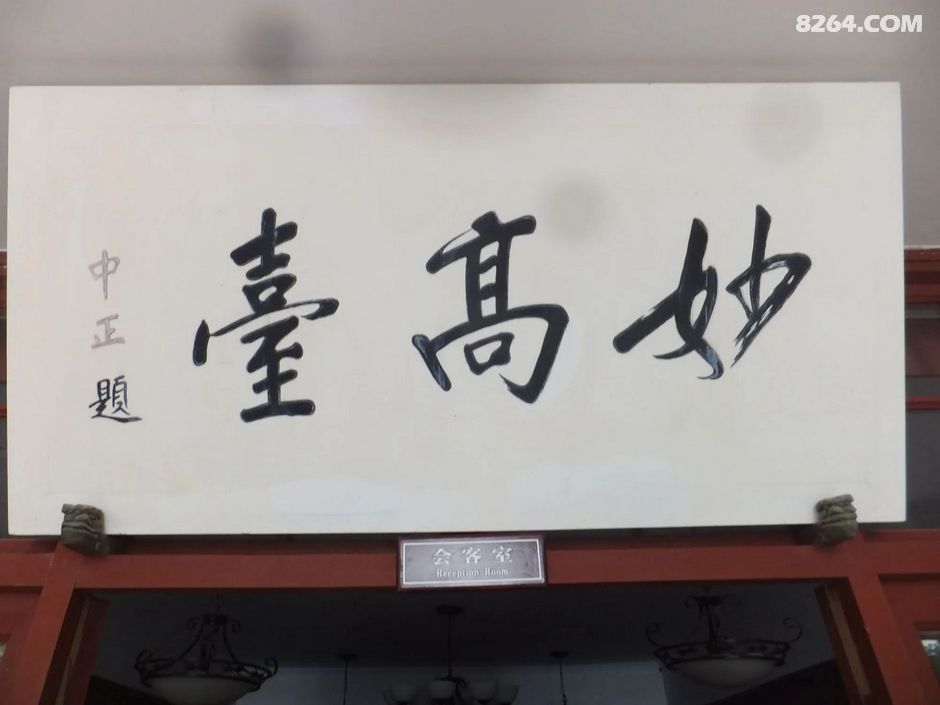 8264.COM
妙高臺
中正題
会客室
Reception Room